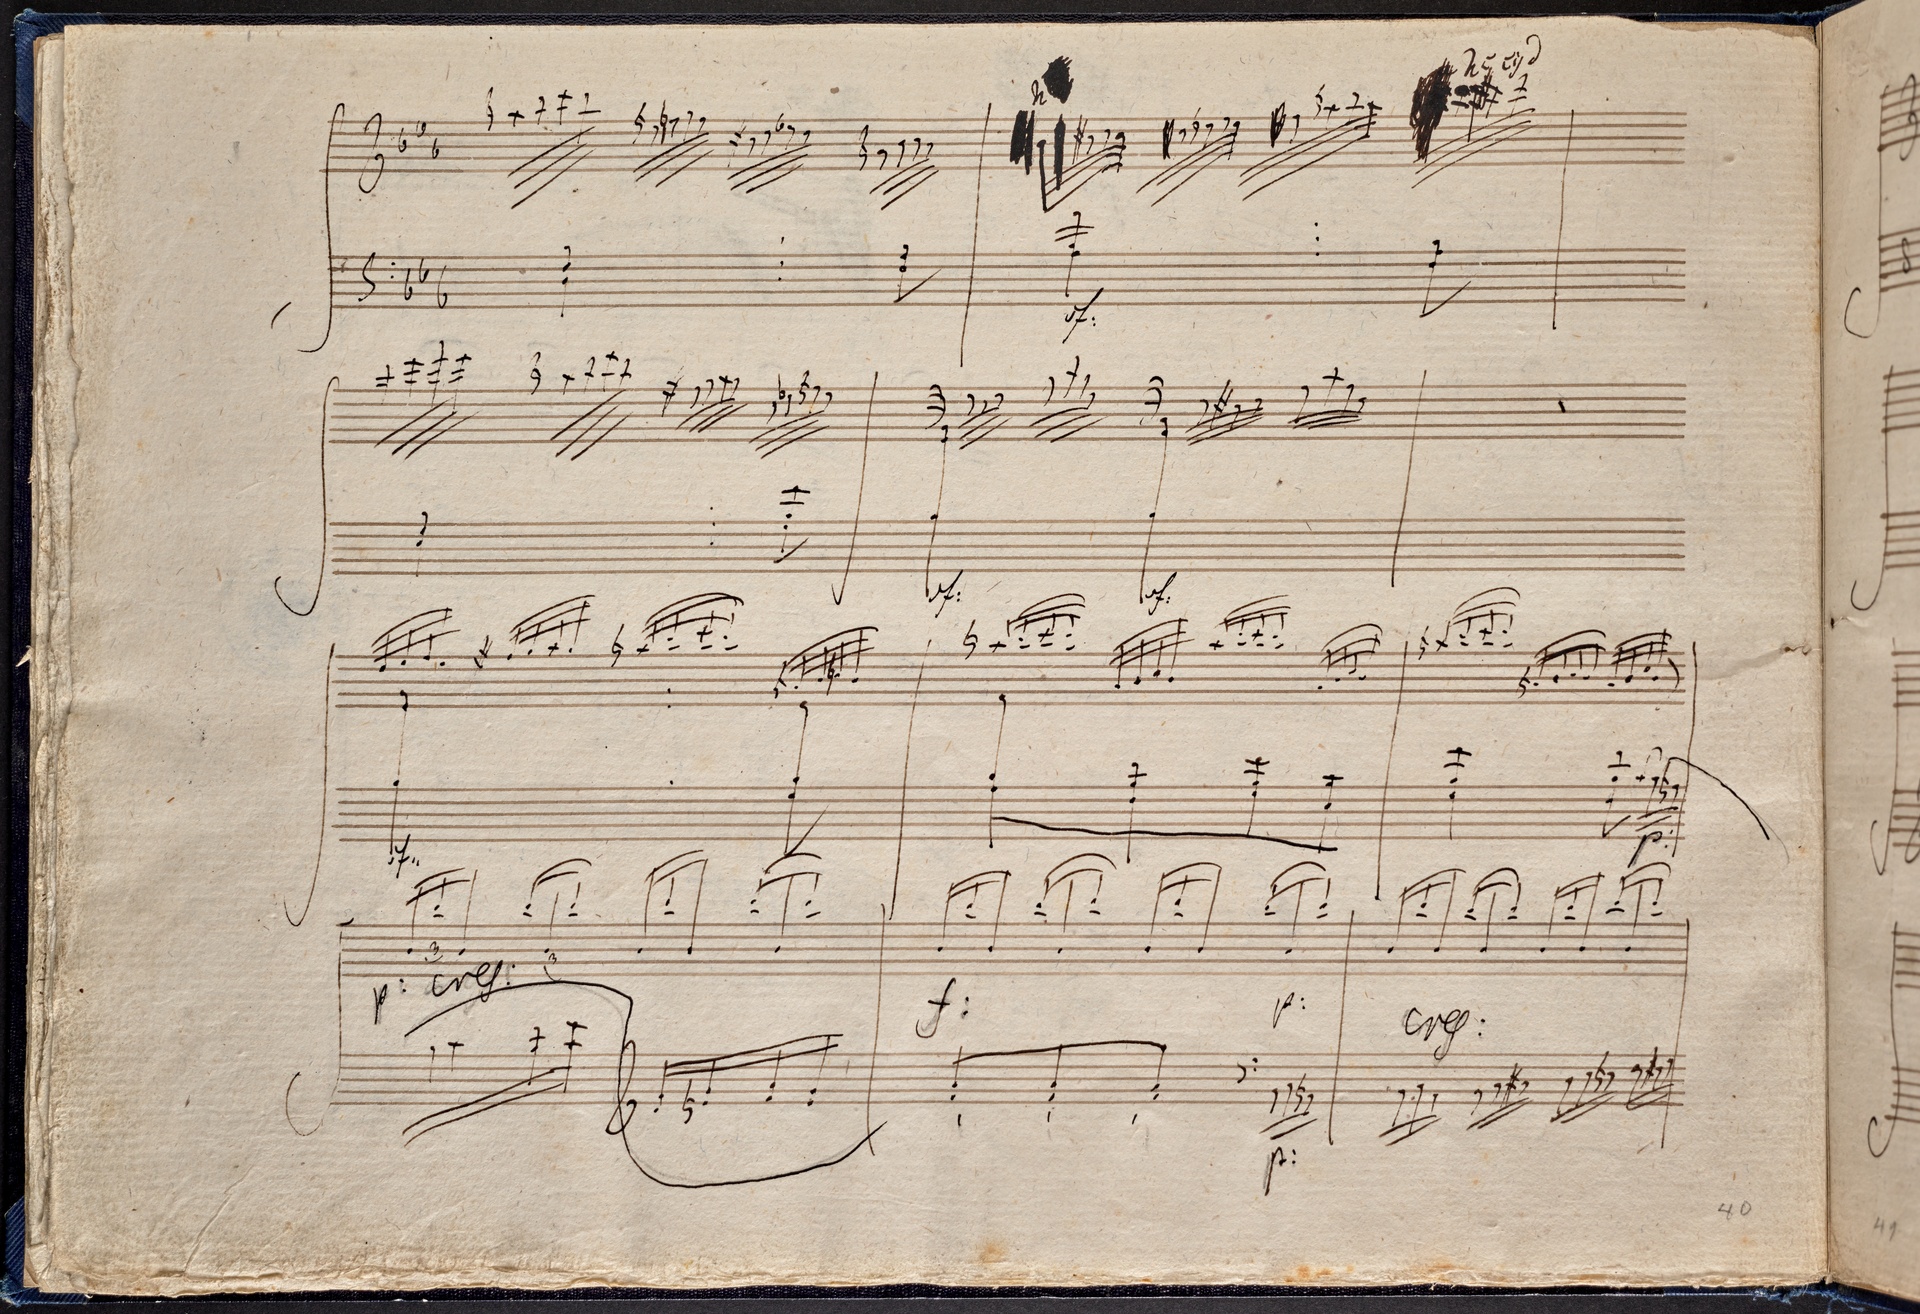 sf:
sf: sf:
sf:
p:
3 3
p: cresc: f: p: cresc:
p:
40
41